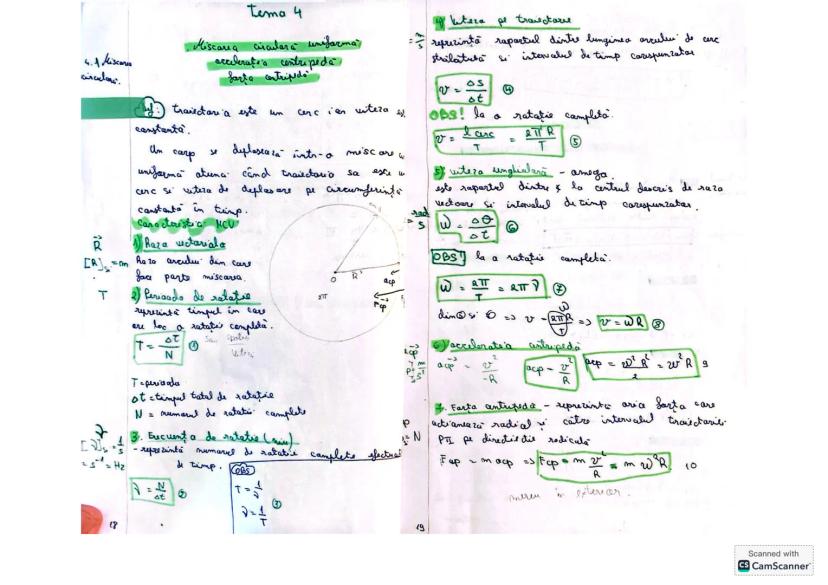 Tema 4
Miscarea circulară uniformă
accelerația centripedă
forța centripedă
4.1 Miscarea
circulară.
Def: traiectoria este un cerc iar viteza
constantă.
Un corp se deplasează într-o miscare
uniformă atunci când traiectoria sa este
cerc si viteza de deplasare pe circumferință
constantă în timp.
Caracteristici MCU
1) Raza vectorială
R
[R]s = m
Raza arcului din care
face parte miscarea.
2) Perioada de rotație
T
reprezintă timpul în care
are loc o rotație completă.
T = Δt/N ①
T = perioada
Δt = timpul total de rotație
N = numarul de rotatii complete
3. Frecvența de rotatie (niu)
- reprezintă numarul de rotatii complete efectuat
de timp.
[ν]s = 1/s
= s⁻¹ = Hz
ν = N/Δt ②
OBS
T = 1/ν
ν = 1/T ③
O R
acp
Fcp
18
4) Viteza pe traiectorie
= m/s
reprezintă raportul dintre lungimea arcului de cerc
străbătută si intervalul de timp corespunzator
v = Δs/Δt ④
OBS! la o rotație completă.
v = l cerc/T = 2πR/T ⑤
5) viteza unghiulară - omega.
este raportul dintre ∢ la centrul descris de raza
vectoare si intervalul de timp corespunzator.
= rad/s
ω = Δθ/Δt ⑥
OBS! la o rotație completă.
ω = 2π/T = 2πν ⑦
din ⑤ si ⑥ => v = 2πR/T => v = ωR ⑧
6) acceleratia centripedă
acp = v²/R
acp = v²/R
acp = ω²R²/R = ω²R 9
7. Forta centripedă - reprezintă acea forța care
actionează radial si către intervalul traiectoriei
PTI pe directie radicală
= N
Fcp = m acp => Fcp = m v²/R = m ω²R 10
mereu în exterior.
19
Scanned with
CS CamScanner